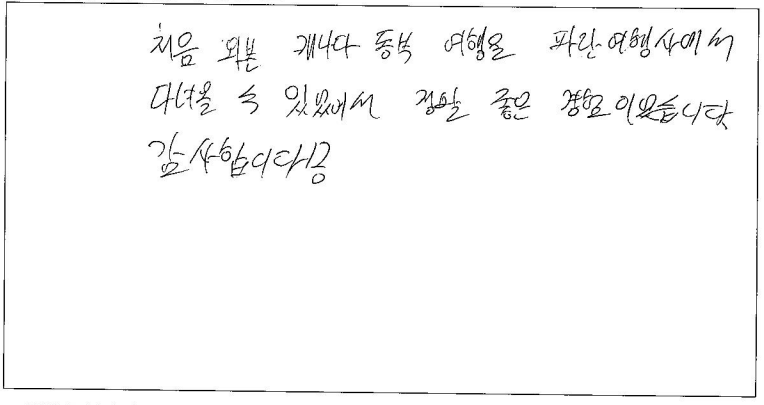 처음 와본 캐나다 동부 여행을 파란여행사에서
다녀올 수 있었어서 정말 좋은 경험이었습니다
감사합니다!!